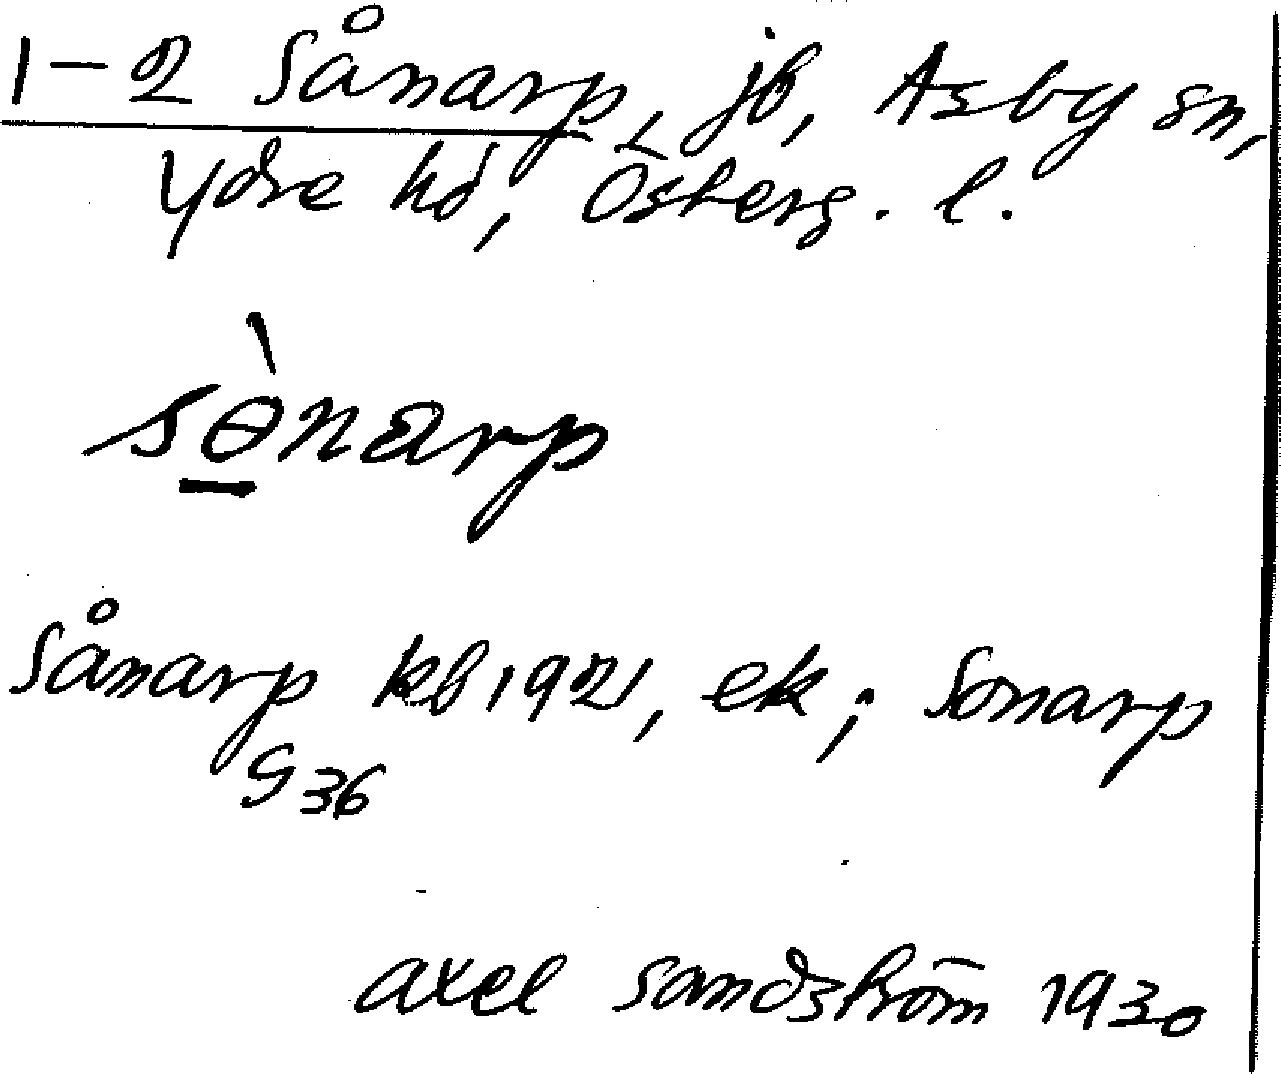 1-2 Sånarp, jb, Asby sn,
Ydre hd, Österg. l.
sɵ̠̀narp
Sånarp kb 1921, ek; Sonarp
G 36
Axel Sandström 1930